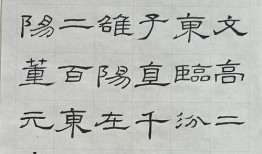 文高二
東臨汾
子直千
雒陽在
二百東
陽董元